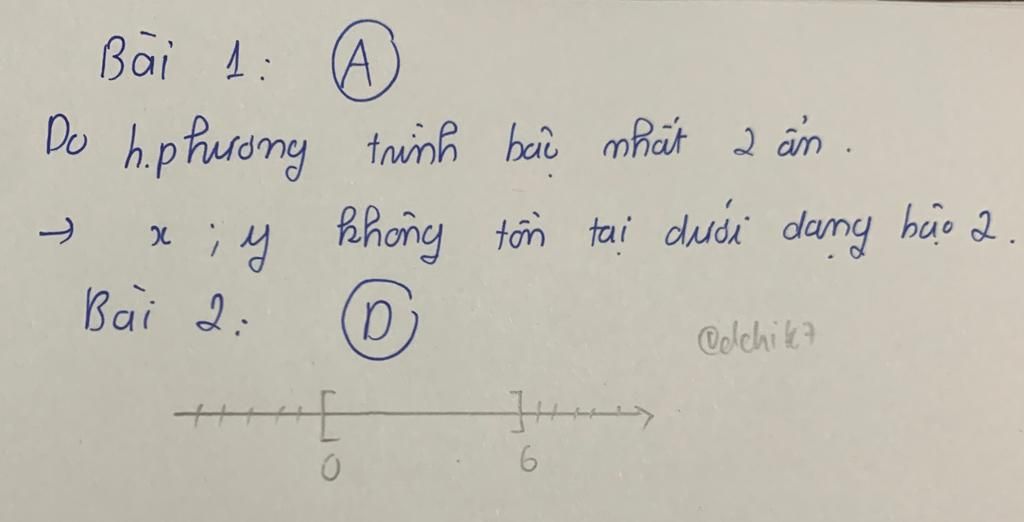 Bài 1: A
Do h.phương trình bậc nhất 2 ẩn.
→ x ; y không tồn tại dưới dạng bậc 2.
Bài 2: D
@dchik7
0 6